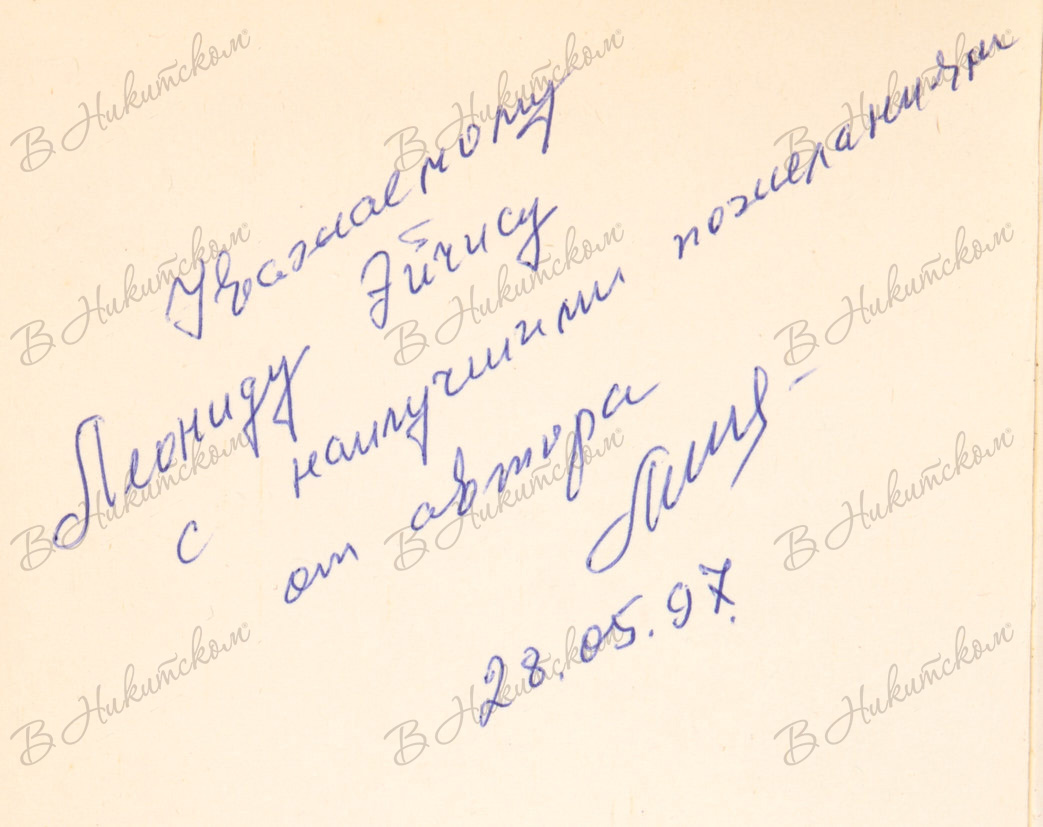 Уважаемому
Леониду Эйчису
с наилучшими пожеланиями
от автора
28.05.97.
В Никитском
В Никитском
В Никитском
В Никитском
В Никитском
В Никитском
В Никитском
В Никитском
В Никитском
В Никитском
В Никитском
В Никитском